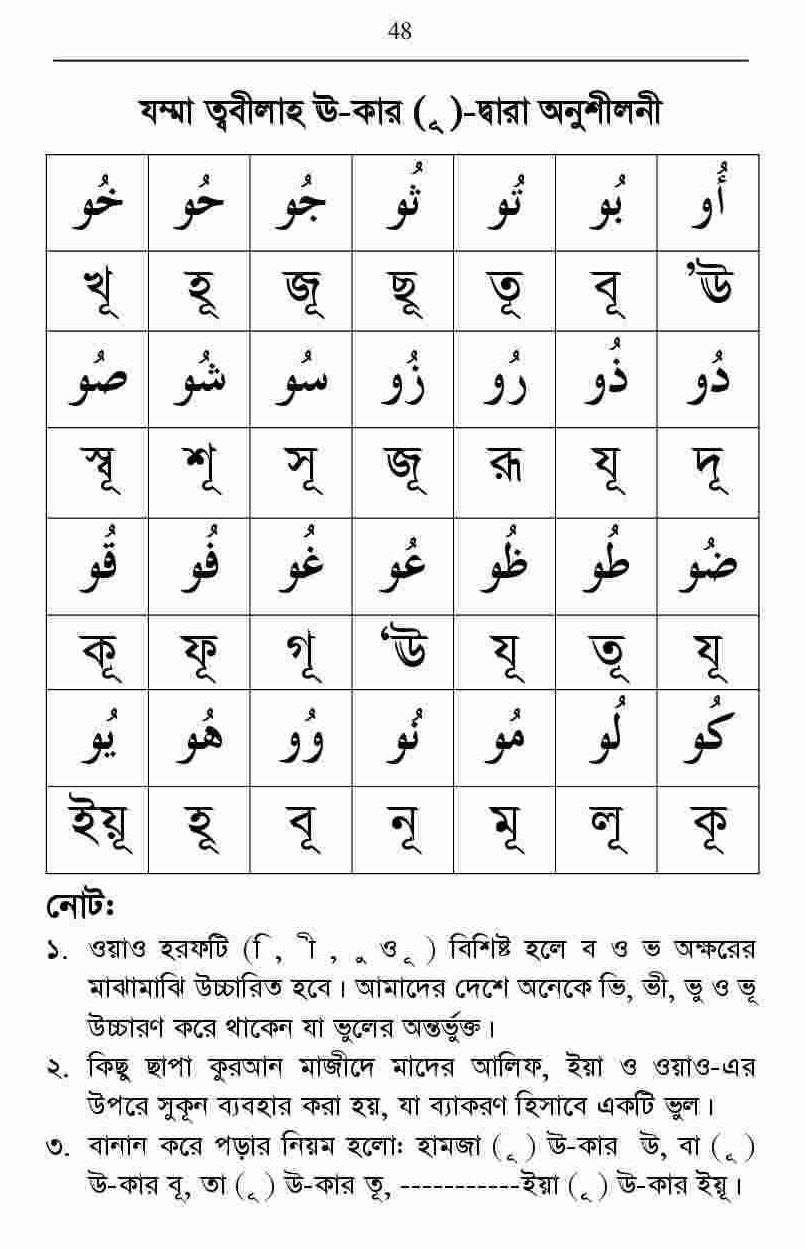 48
যম্মা ত্ববীলাহ ঊ-কার ( ূ )-দ্বারা অনুশীলনী
أُو بُو تُو ثُو جُو حُو خُو
’ঊ বূ তূ ছূ জূ হূ খূ
دُو ذُو رُو زُو سُو شُو صُو
দূ যূ রূ জূ সূ শূ স্বূ
ضُو طُو ظُو عُو غُو فُو قُو
যূ তূ যূ ‘ঊ গূ ফূ কূ
كُو لُو مُو نُو وُو هُو يُو
কূ লূ মূ নূ বূ হূ ইয়ূ
নোট:
১. ওয়াও হরফটি (ি , ী , ু ও ূ ) বিশিষ্ট হলে ব ও ভ অক্ষরের
মাঝামাঝি উচ্চারিত হবে। আমাদের দেশে অনেকে ভি, ভী, ভু ও ভূ
উচ্চারণ করে থাকেন যা ভুলের অন্তর্ভুক্ত।
২. কিছু ছাপা কুরআন মাজীদে মাদের আলিফ, ইয়া ও ওয়াও-এর
উপরে সুকূন ব্যবহার করা হয়, যা ব্যাকরণ হিসাবে একটি ভুল।
৩. বানান করে পড়ার নিয়ম হলোঃ হামজা ( ূ ) ঊ-কার ঊ, বা ( ূ )
ঊ-কার বূ, তা ( ূ ) ঊ-কার তূ, -----------ইয়া ( ূ ) ঊ-কার ইয়ূ।